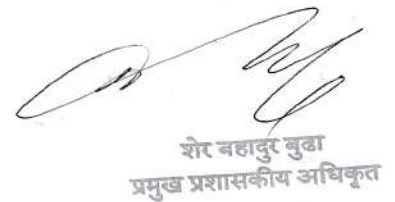 शेर बहादुर बुढा
प्रमुख प्रशासकीय अधिकृत